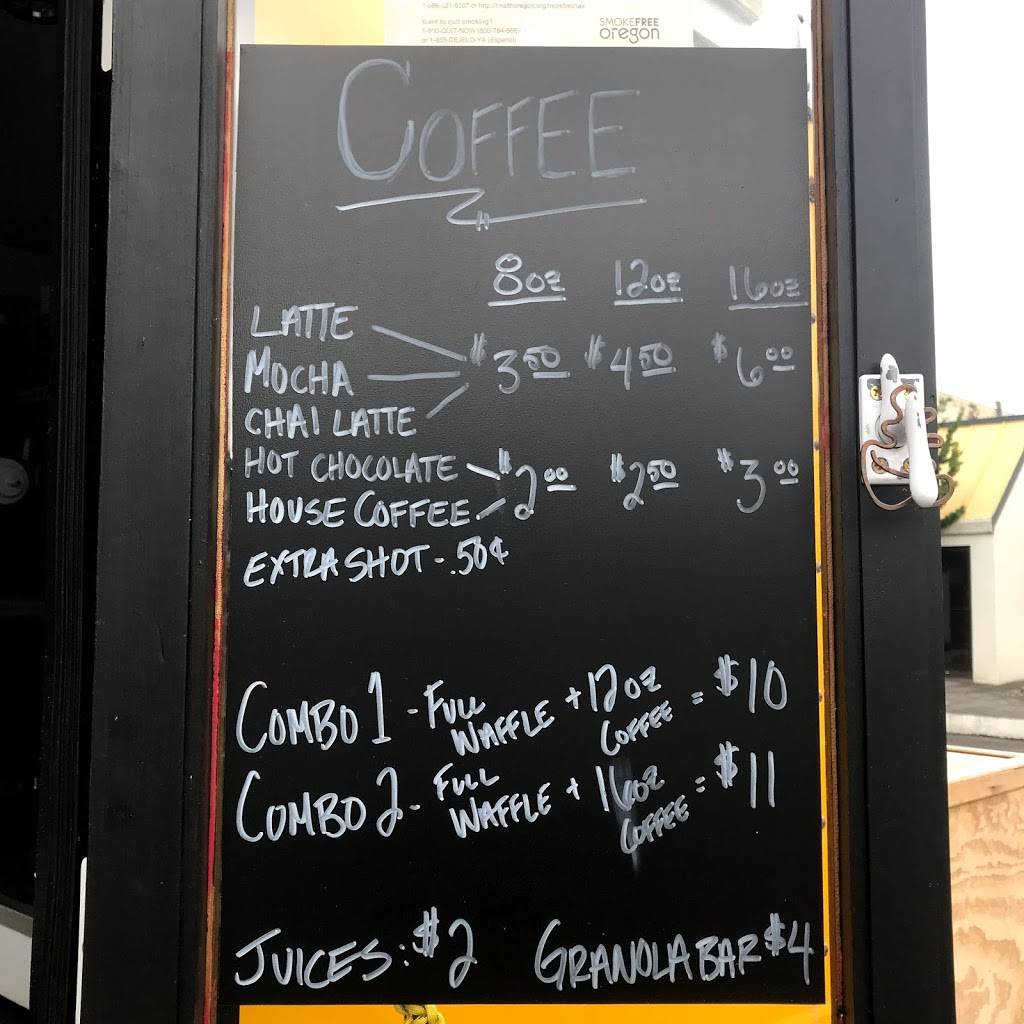 Want to quit smoking?
1-800-QUIT-NOW
or 1-855-DEJELO-YA (Español)
SMOKEFREE
oregon
COFFEE
8oz 12oz 16oz
LATTE
MOCHA $3.50 $4.50 $6.00
CHAI LATTE
HOT CHOCOLATE $2.00 $2.50 $3.00
HOUSE COFFEE
EXTRA SHOT - .50¢
COMBO 1 - FULL WAFFLE + 12oz COFFEE = $10
COMBO 2 - FULL WAFFLE + 16oz COFFEE = $11
JUICES: $2 GRANOLA BAR $4